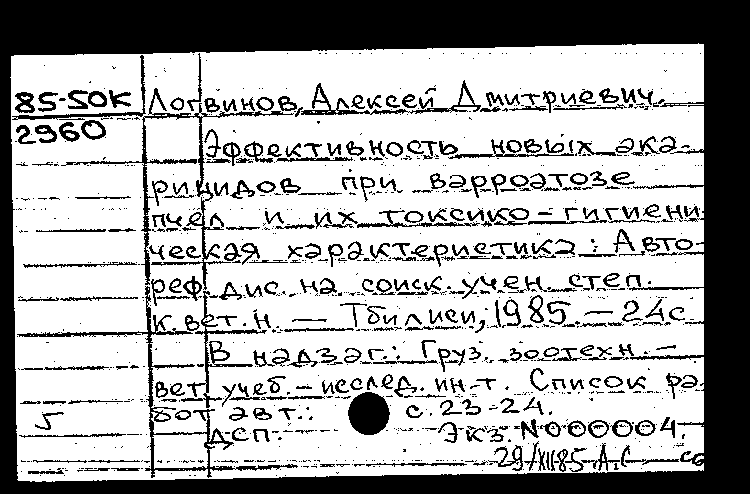 85-50К Логвинов, Алексей Дмитриевич.
2960
Эффективность новых ака-
рицидов при варроатозе
пчел и их токсико-гигиени-
ческая характеристика: Авто-
реф. дис. на соиск. учен. степ.
к. вет. н. — Тбилиси, 1985. — 24с
В надзаг.: Груз. зоотехн.-
вет. учеб.-исслед. ин-т. Список ра-
5 бот авт.: с. 23-24.
ДСП. Экз. N000004.
29/XII85 А.С со